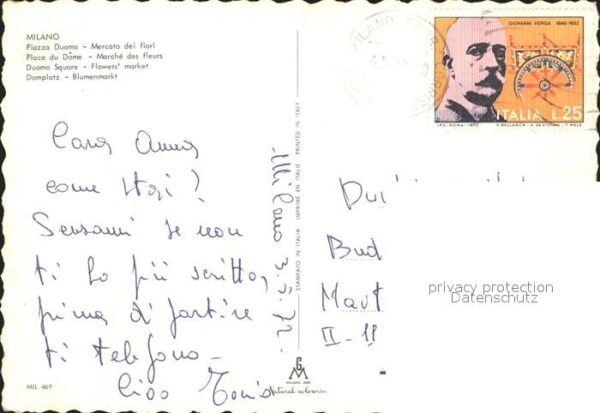 MILANO
Piazza Duomo - Mercato dei fiori
Place du Dôme - Marché des fleurs
Duomo Square - Flowers' market
Domplatz - Blumenmarkt
Cara Anna
come stai?
Scusami se non
ti ho più scritto,
prima di partire
ti telefono -
Ciao
MIL. 469
STAMPATO IN ITALIA IMPRIMÉ EN ITALIE PRINTED IN ITALY
Milano 3.5.72
Natural colours
MILANO
GIOVANNI VERGA 1840-1922
ITALIA L.25
I.P.S. ROMA 1972
Bud
II-18
privacy protection
Datenschutz